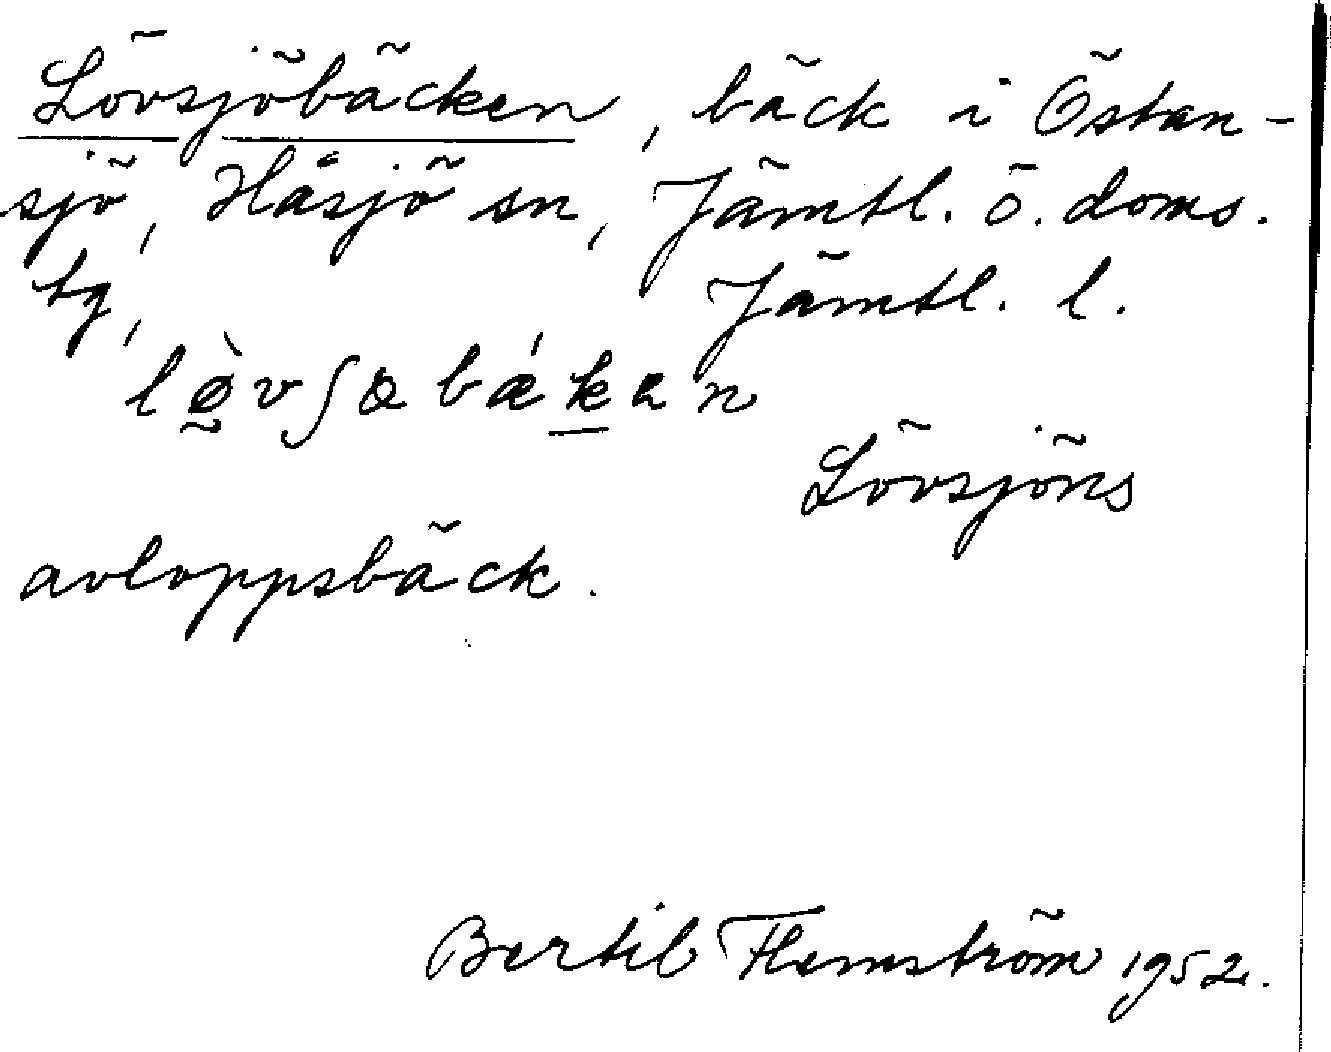 Lövsjöbäcken, bäck i Östan-
sjö, Håsjö sn, Jämtl. ö. doms.
tg, Jämtl. l.
lø̀vʃəbǽkən
Lövsjöns
avloppsbäck.
Bertil Flemström 1952.